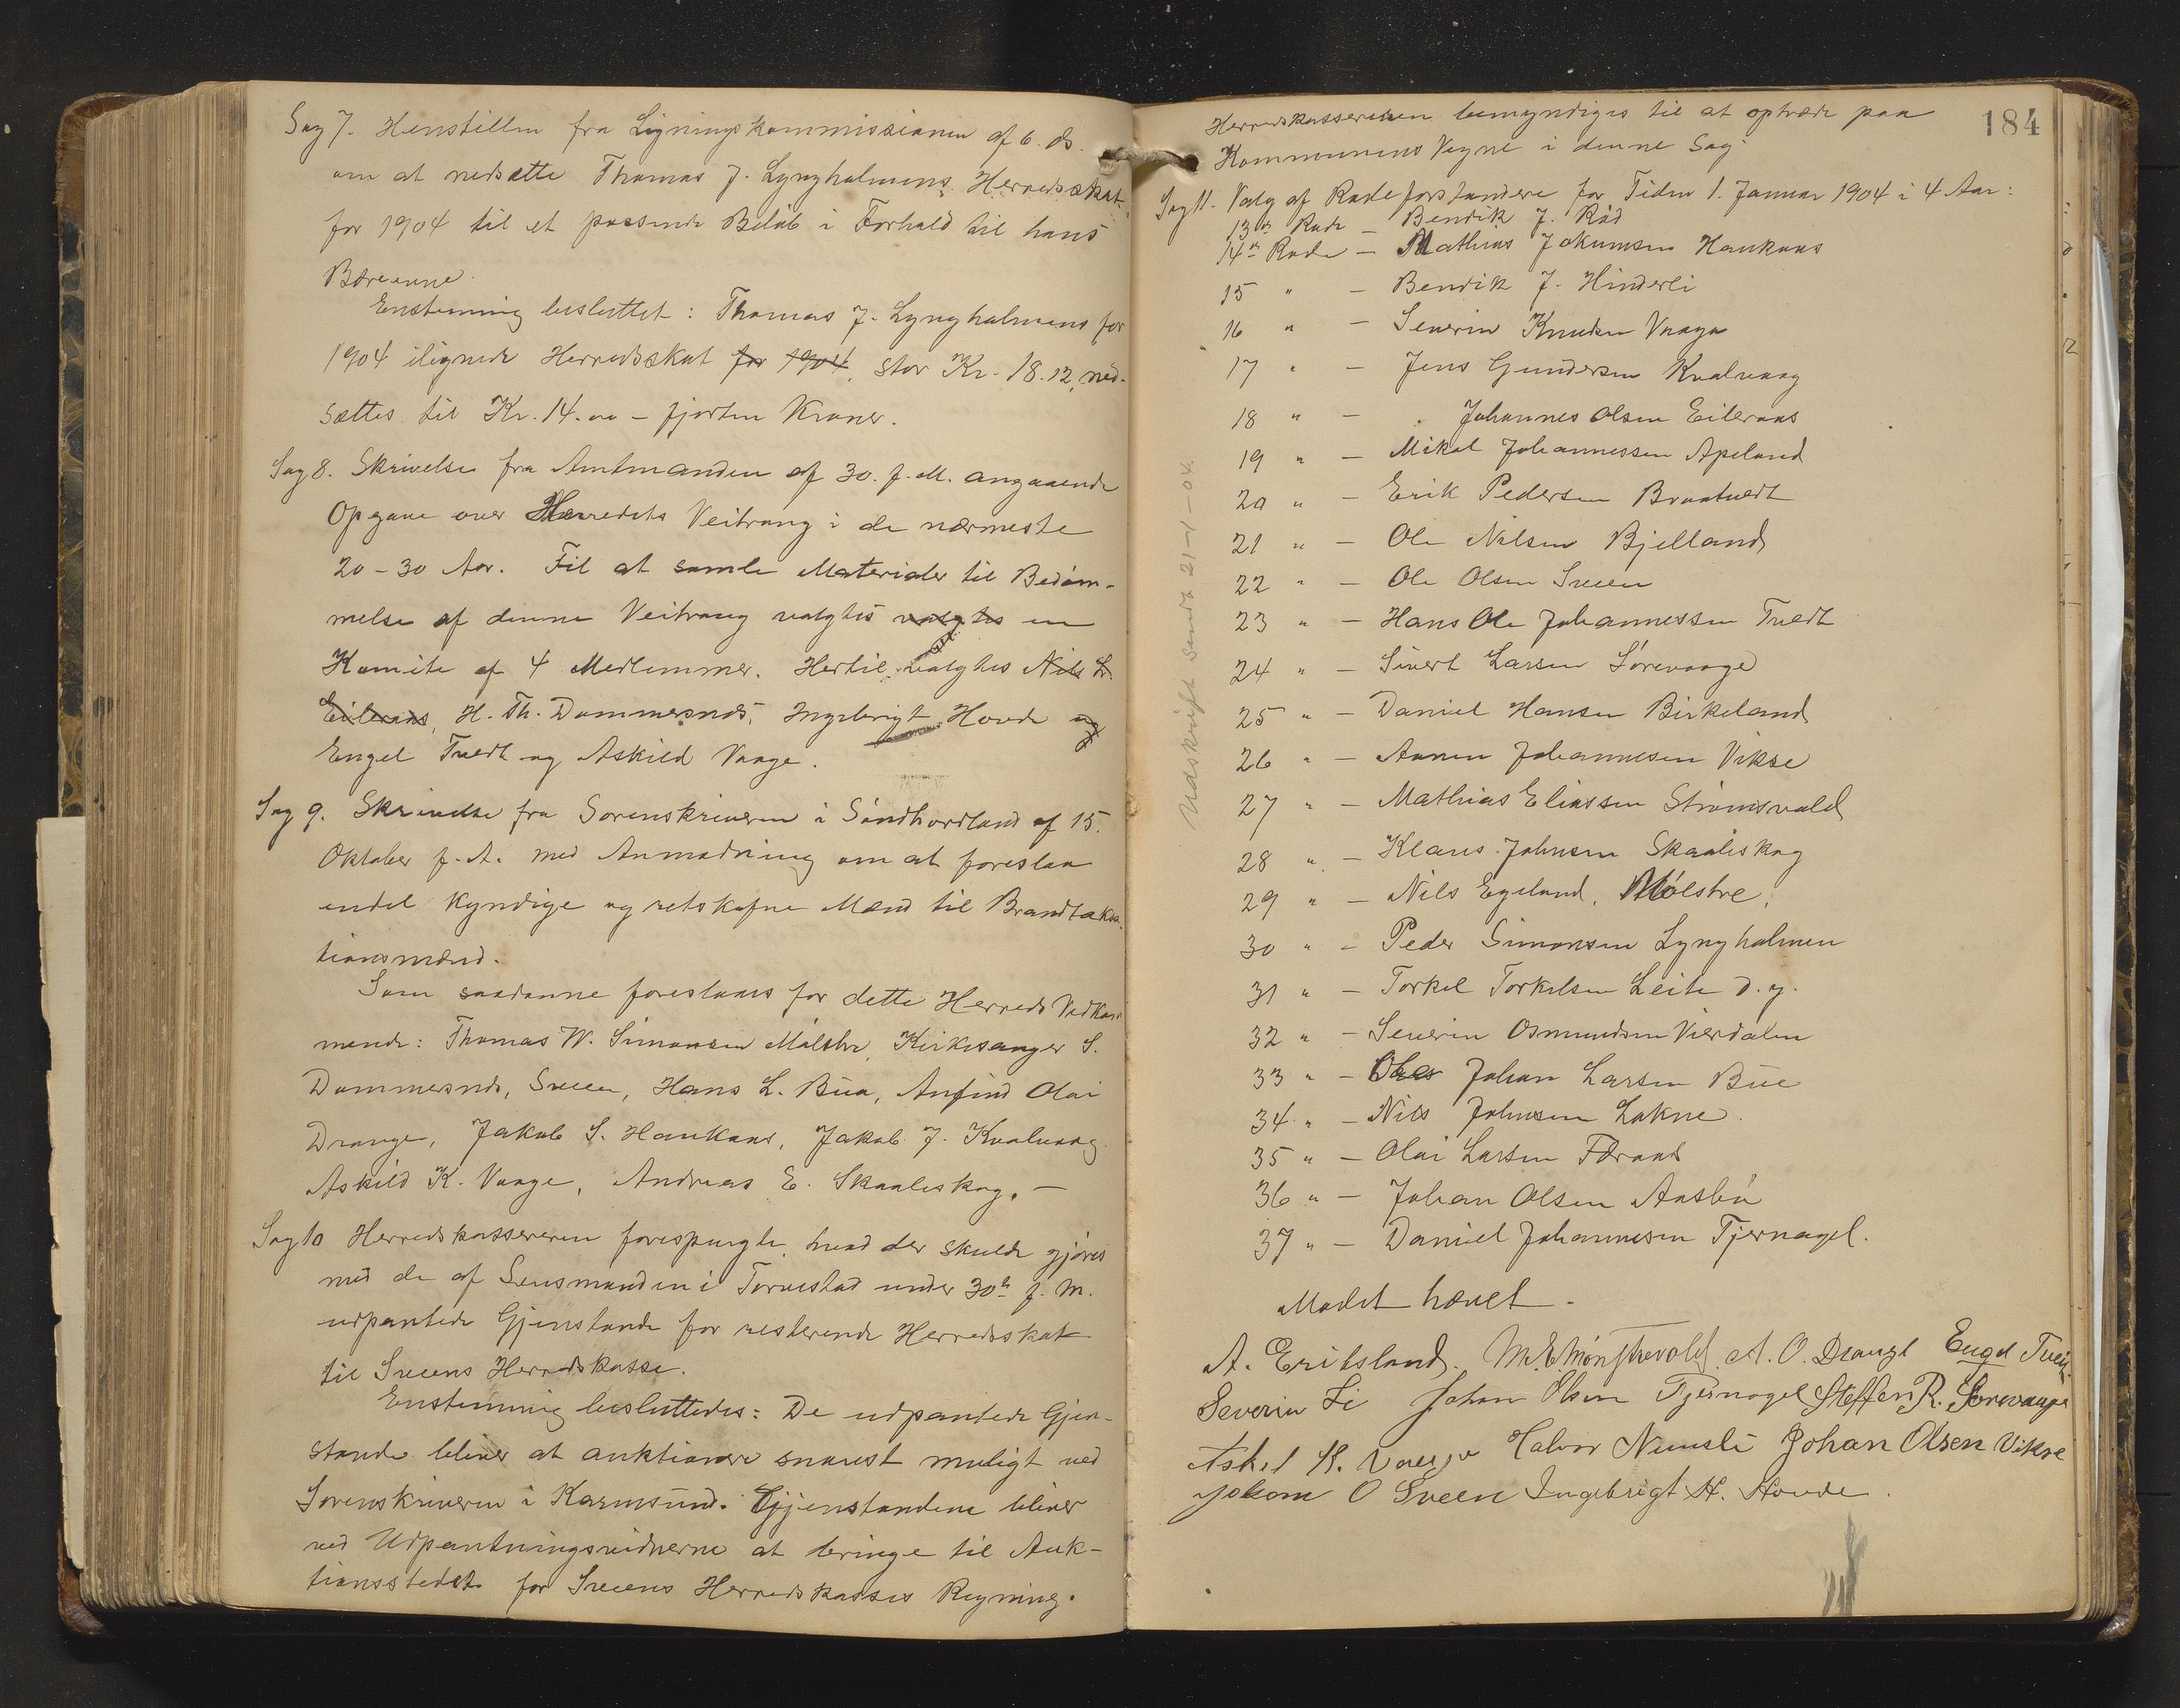 Sag 7. Henstillen fra Ligningskommissionen af 6. ds.
om at nedsætte Thomas J. Lyngholmens Herredsskat
for 1904 til et passende Beløb i Forhold til hans
Bæreevne.
Enstemmig besluttet: Thomas J. Lyngholmens for
1904 ilignede Herredsskat for 1904, stor Kr. 18.12, ned-
sættes til Kr. 14.00 – fjorten Kroner.
Sag 8. Skrivelse fra Amtmanden af 30. f. M. angaaende
Opgave over Herredets Veitrang i de nærmeste
20-30 Aar. Til at samle Materialer til Bedøm-
melse af denne Veitrang valgtes valgtes en
Komite af 4 Medlemmer. Hertil valgtes Nils L.
Eileraas, H. Th. Dommersnes, Ingebrigt Hovde og
Engel Tvedt og Askild Vaage.
Sag 9. Skrivelse fra Sorenskriveren i Søndhordland af 15.
Oktober f. A. med Anmodning om at foreslaa
endel kyndige og retskafne Mænd til Brandtaksa-
tionsmænd.
Som saadanne foreslaaes for dette Herreds Vedkom
mende: Thomas W. Simonsen Mølstre, Kirkesanger S.
Dommersnes, Sveen, Hans L. Bua, Anfind Olai
Drange, Jakob S. Haukaas, Jakob J. Kvalvaag
Askild K. Vaage, Andreas E. Skaaleskog. –
Sag 10 Herredskassereren forespurgte, hvad der skulde gjøres
med de af Lensmanden i Torvestad under 30te f. M.
udpantede Gjenstande for resterende Herredsskat
til Sveens Herredskasse.
Enstemmig besluttedes: De udpantede Gjen-
stande bliver at auktionere snarest muligt ved
Sorenskriveren i Karmsund. Gjenstandene bliver
ved Udpantningsvidnerne at bringe til Auk-
tionsstedet for Sveens Herredskasses Regning.
184
Herredskassereren bemyndiges til at optræde paa
Kommunens Vegne i denne Sag.
Sag 11. Valg af Rodeforstandere for Tiden 1. Januar 1904 i 4 Aar:
13de Rode – Bendik J. Rød
14de Rode – Mathias Jokumsen Haukaas
15 " – Bendik J. Hinderli
16 " – Severin Knudsen Vaage
17 " – Jens Gundersen Kvalvaag
18 " – Johannes Olsen Eileraas
19 " – Mikal Johannessen Apeland
20 " – Erik Pedersen Braatvedt
21 " – Ole Nilsen Bjelland
22 " – Ole Olsen Sveen
23 " – Hans Ole Johannessen Tvedt
24 " – Sivert Larsen Sørevaage
25 " – Daniel Hansen Birkeland
26 " – Aanen Johannesen Vikse
27 " – Mathias Eliassen Strømsvold
28 " – Klaus Johnsen Skaaliskog
29 " – Nils Egeland, Mølstre.
30 " – Peder Simonsen Lyngholmen
31 " – Torkel Torkelsen Leite d. y.
32 " – Severin Osmundsen Vierdalen
33 " – Johan Larsen Bue
34 " – Nils Johnsen Løkne.
35 " – Olai Larsen Færaas
36 " – Johan Olsen Aasbø
37 " – Daniel Johannesen Tjernagel.
Mødet hævet.
A. Eriksland. M. E. Mønstrevold A. O. Drange Engel Tvedt
Severin Li Johan Olsen Tjernagel Steffen R. Sørevaage
Askel K. Vaage Halvor Nemsli Johan Olsen Vikse
Johan O Sveen Ingebrigt H. Hovde.
Udskrift sendt 21-1-04.